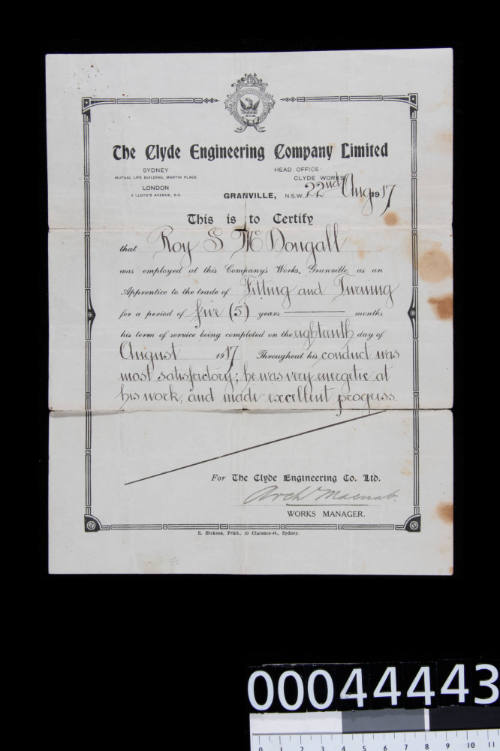 The Clyde Engineering Company Limited
SYDNEY
MUTUAL LIFE BUILDING, MARTIN PLACE
LONDON
HEAD OFFICE
CLYDE WORKS
GRANVILLE, N.S.W. 22nd Aug 1917
This is to Certify
that Roy S. McDougall
was employed at this Company's Works, Granville, as an
Apprentice to the trade of Fitting and Turning
for a period of five (5) years months
his term of service being completed on the eighteenth day of
August 1917. Throughout his conduct was
most satisfactory; he was very energetic at
his work, and made excellent progress.
For The Clyde Engineering Co. Ltd.
Arch Macnab.
WORKS MANAGER.
00044443
0 1 2 3 4 5 6 7 8 9 10 11